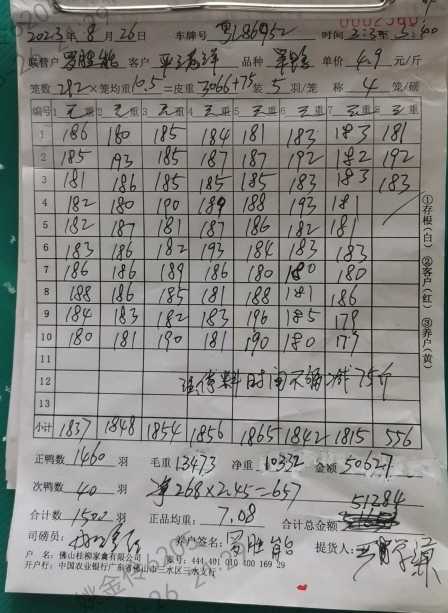 2023 年 8 月 26 日 车牌号 粤L86952 时间 2:3至5:00
联营户 罗胜能 客户 品种 单价 4.9 元/斤
笼数 292 × 笼均重 10.5 = 皮重 3066+75 装 5 羽/笼 称 4 笼/磅
编号 1 毛重 2 毛重 3 毛重 4 毛重 5 毛重 6 毛重 7 毛重 8 毛重
1 186 180 185 184 181 183 183 181
2 185 193 185 187 187 192 182 192
3 181 186 185 185 185 183 183 183
4 182 180 190 189 188 193 181
5 182 187 181 187 186 182 181
6 183 186 182 193 184 183 183
7 186 186 189 186 180 180 180
8 188 186 185 181 188 181 186
9 184 183 182 183 196 185 178
10 180 181 190 181 190 180 177
11
12 料时间不够减75斤
13
小计 1837 1848 1854 1856 1865 1842 1815 556
正鸭数 1460 羽 毛重 13473 净重 10332 金额 50627
次鸭数 40 羽 净268×2.45=657
51284
合计数 1500 羽 正品均重: 7.08 合计总金额
司磅员: 养户签名: 罗胜能 提货人:
户 名: 佛山桂柳家禽有限公司 账号: 444 401 010 400 169 29
开户行: 中国农业银行广东省佛山市三水区三水支行
①存根(白) ②客户(红) ③养户(黄)